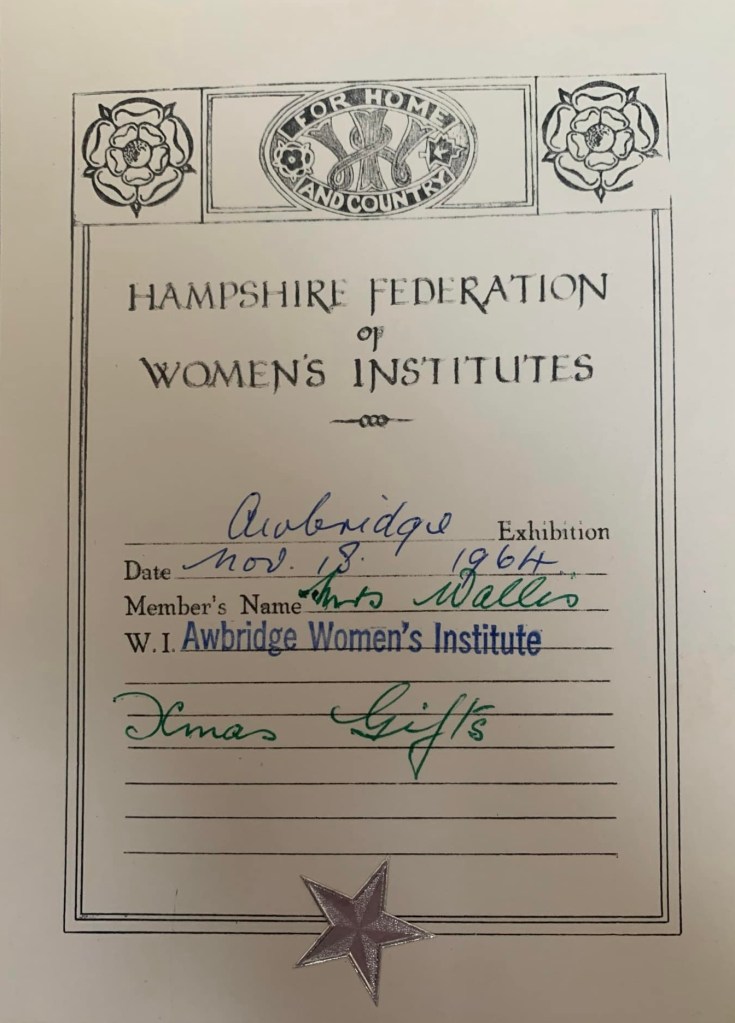 FOR HOME
WI
AND COUNTRY
HAMPSHIRE FEDERATION
OF
WOMEN'S INSTITUTES
Awbridge Exhibition
Date Nov. 18. 1964.
Member's Name Mrs Wallis
W.I. Awbridge Women's Institute
Xmas Gifts